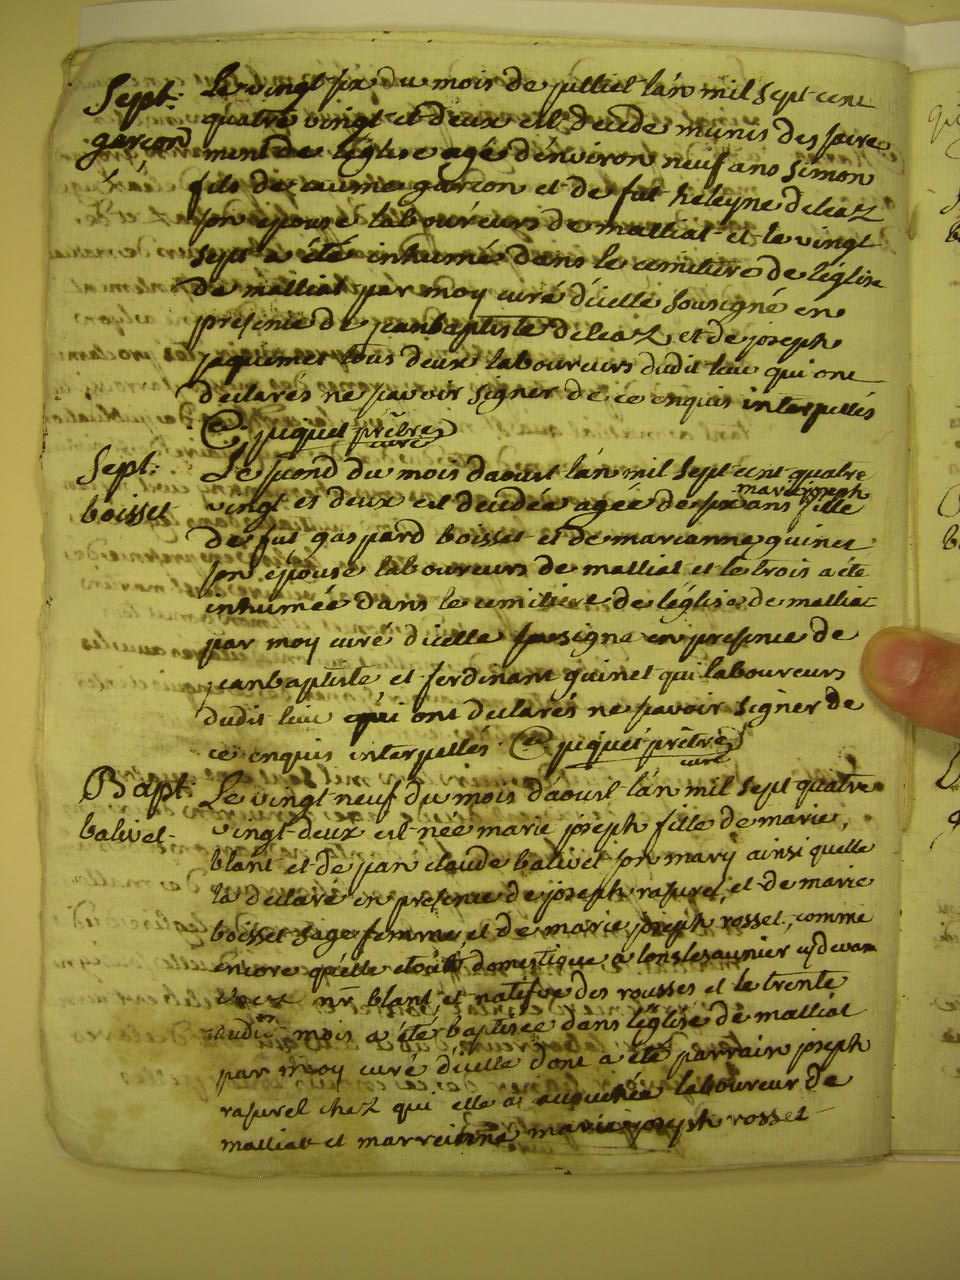 Sept:
garçon
Le vingt six du mois de juilliet l'an mil sept cent
quatre vingt et deux est decede munis des sacre
ment de l'eglise agé d'environ neuf ans simon
fils de garçon et de fut heleyne deleaz
son epouse laboureurs de malliat et le vingt
sept a été inhumé dans le cemitiere de l'église
de malliat par moy curé d'icelle sousigné en
presence de jeanbaptiste deleaz et de joseph
jaquemet tous deux laboureurs dudit lieu qui ont
declarés ne savoir signer de ce enquis interpellés
juquet prêtre
curé
Sept:
boisset
Le second du mois daoust l'an mil sept cent quatre
vingt et deux est decedée agée de six ans marie joseph fille
de fut gaspard boisset et de marianne guinet
son epouse laboureurs de malliat et le trois a été
inhumée dans le cemitiere de l'église de malliat
par moy curé d'icelle sousigné en presence de
jeanbaptiste et ferdinant guinet qui laboureurs
dudit lieu qui ont declarés ne savoir signer de
ce enquis interpellés juquet prêtre
curé
Bapt:
balivet
Le vingt neuf du mois d'aoust l'an mil sept quatre
vingt deux est née marie joseph fille de marie
blant et de jean claude balivet son mary ainsi quelle
la declare en presence de joseph rasurel, et de marie
boisset sage femme, et de marie joseph rosset, comme
encore quelle etoit domestique a lonslesaunier cydevant
chez mr blant, et natifve des rousses et le trente
dudit mois a été baptisée dans l'église de malliat
par moy curé d'icelle dont a été parrain joseph
rasurel chez qui elle a accouchée laboureur de
malliat et marreine marie joseph rosset